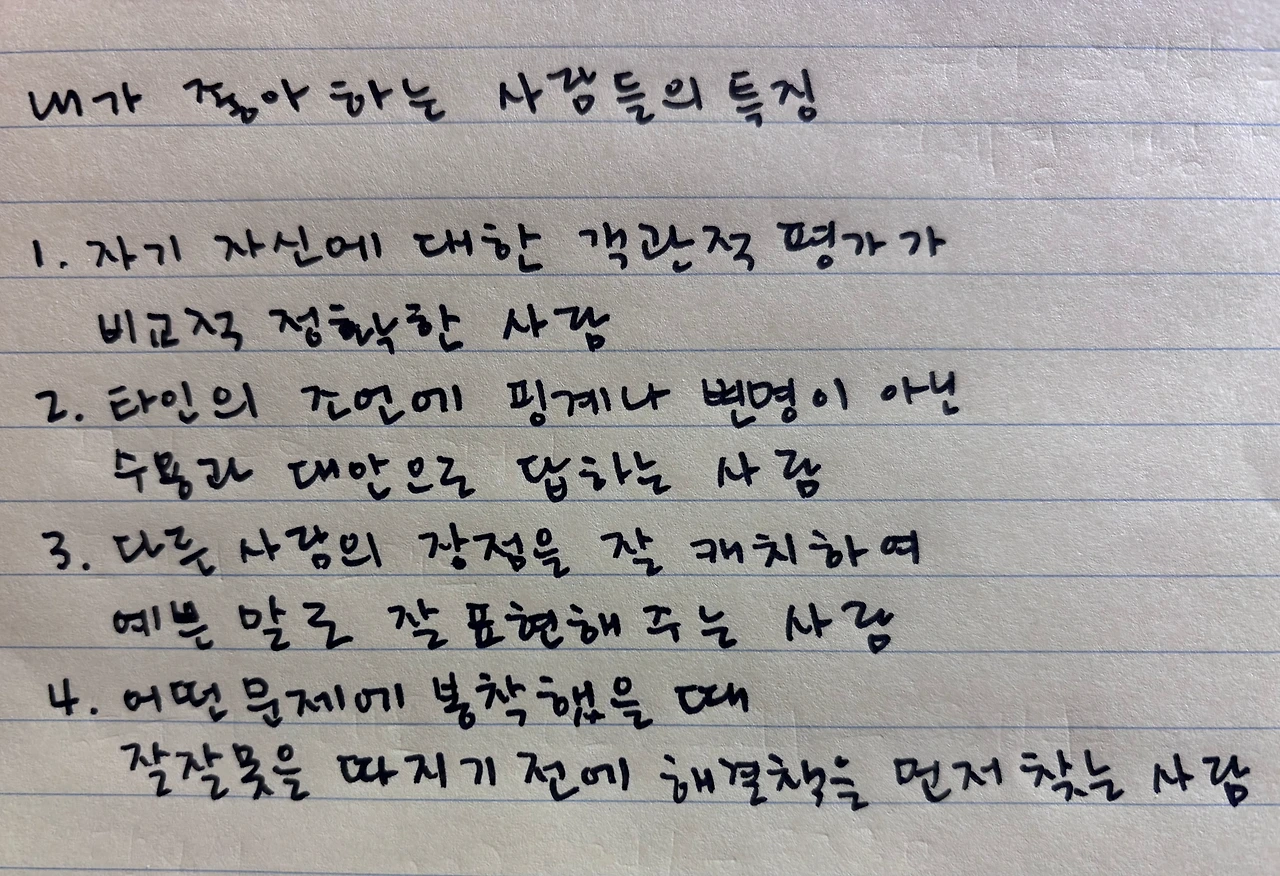 내가 좋아하는 사람들의 특징
1. 자기 자신에 대한 객관적 평가가
비교적 정확한 사람
2. 타인의 조언에 핑계나 변명이 아닌
수용과 대안으로 답하는 사람
3. 다른 사람의 장점을 잘 캐치하여
예쁜 말로 잘 표현해 주는 사람
4. 어떤 문제에 봉착했을 때
잘잘못을 따지기 전에 해결책을 먼저 찾는 사람